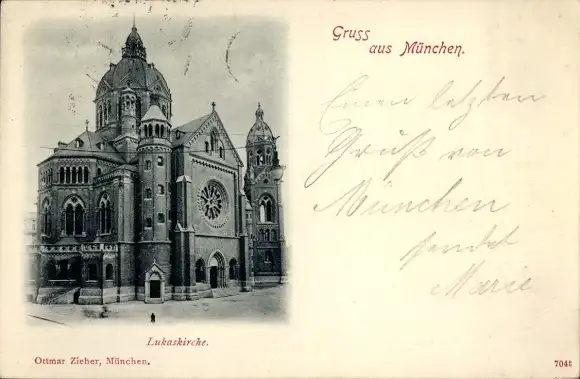 Gruss
aus München.
Einen letzten
Gruß von
München
sendet
Marie
Lukaskirche.
Ottmar Zieher, München.
7041